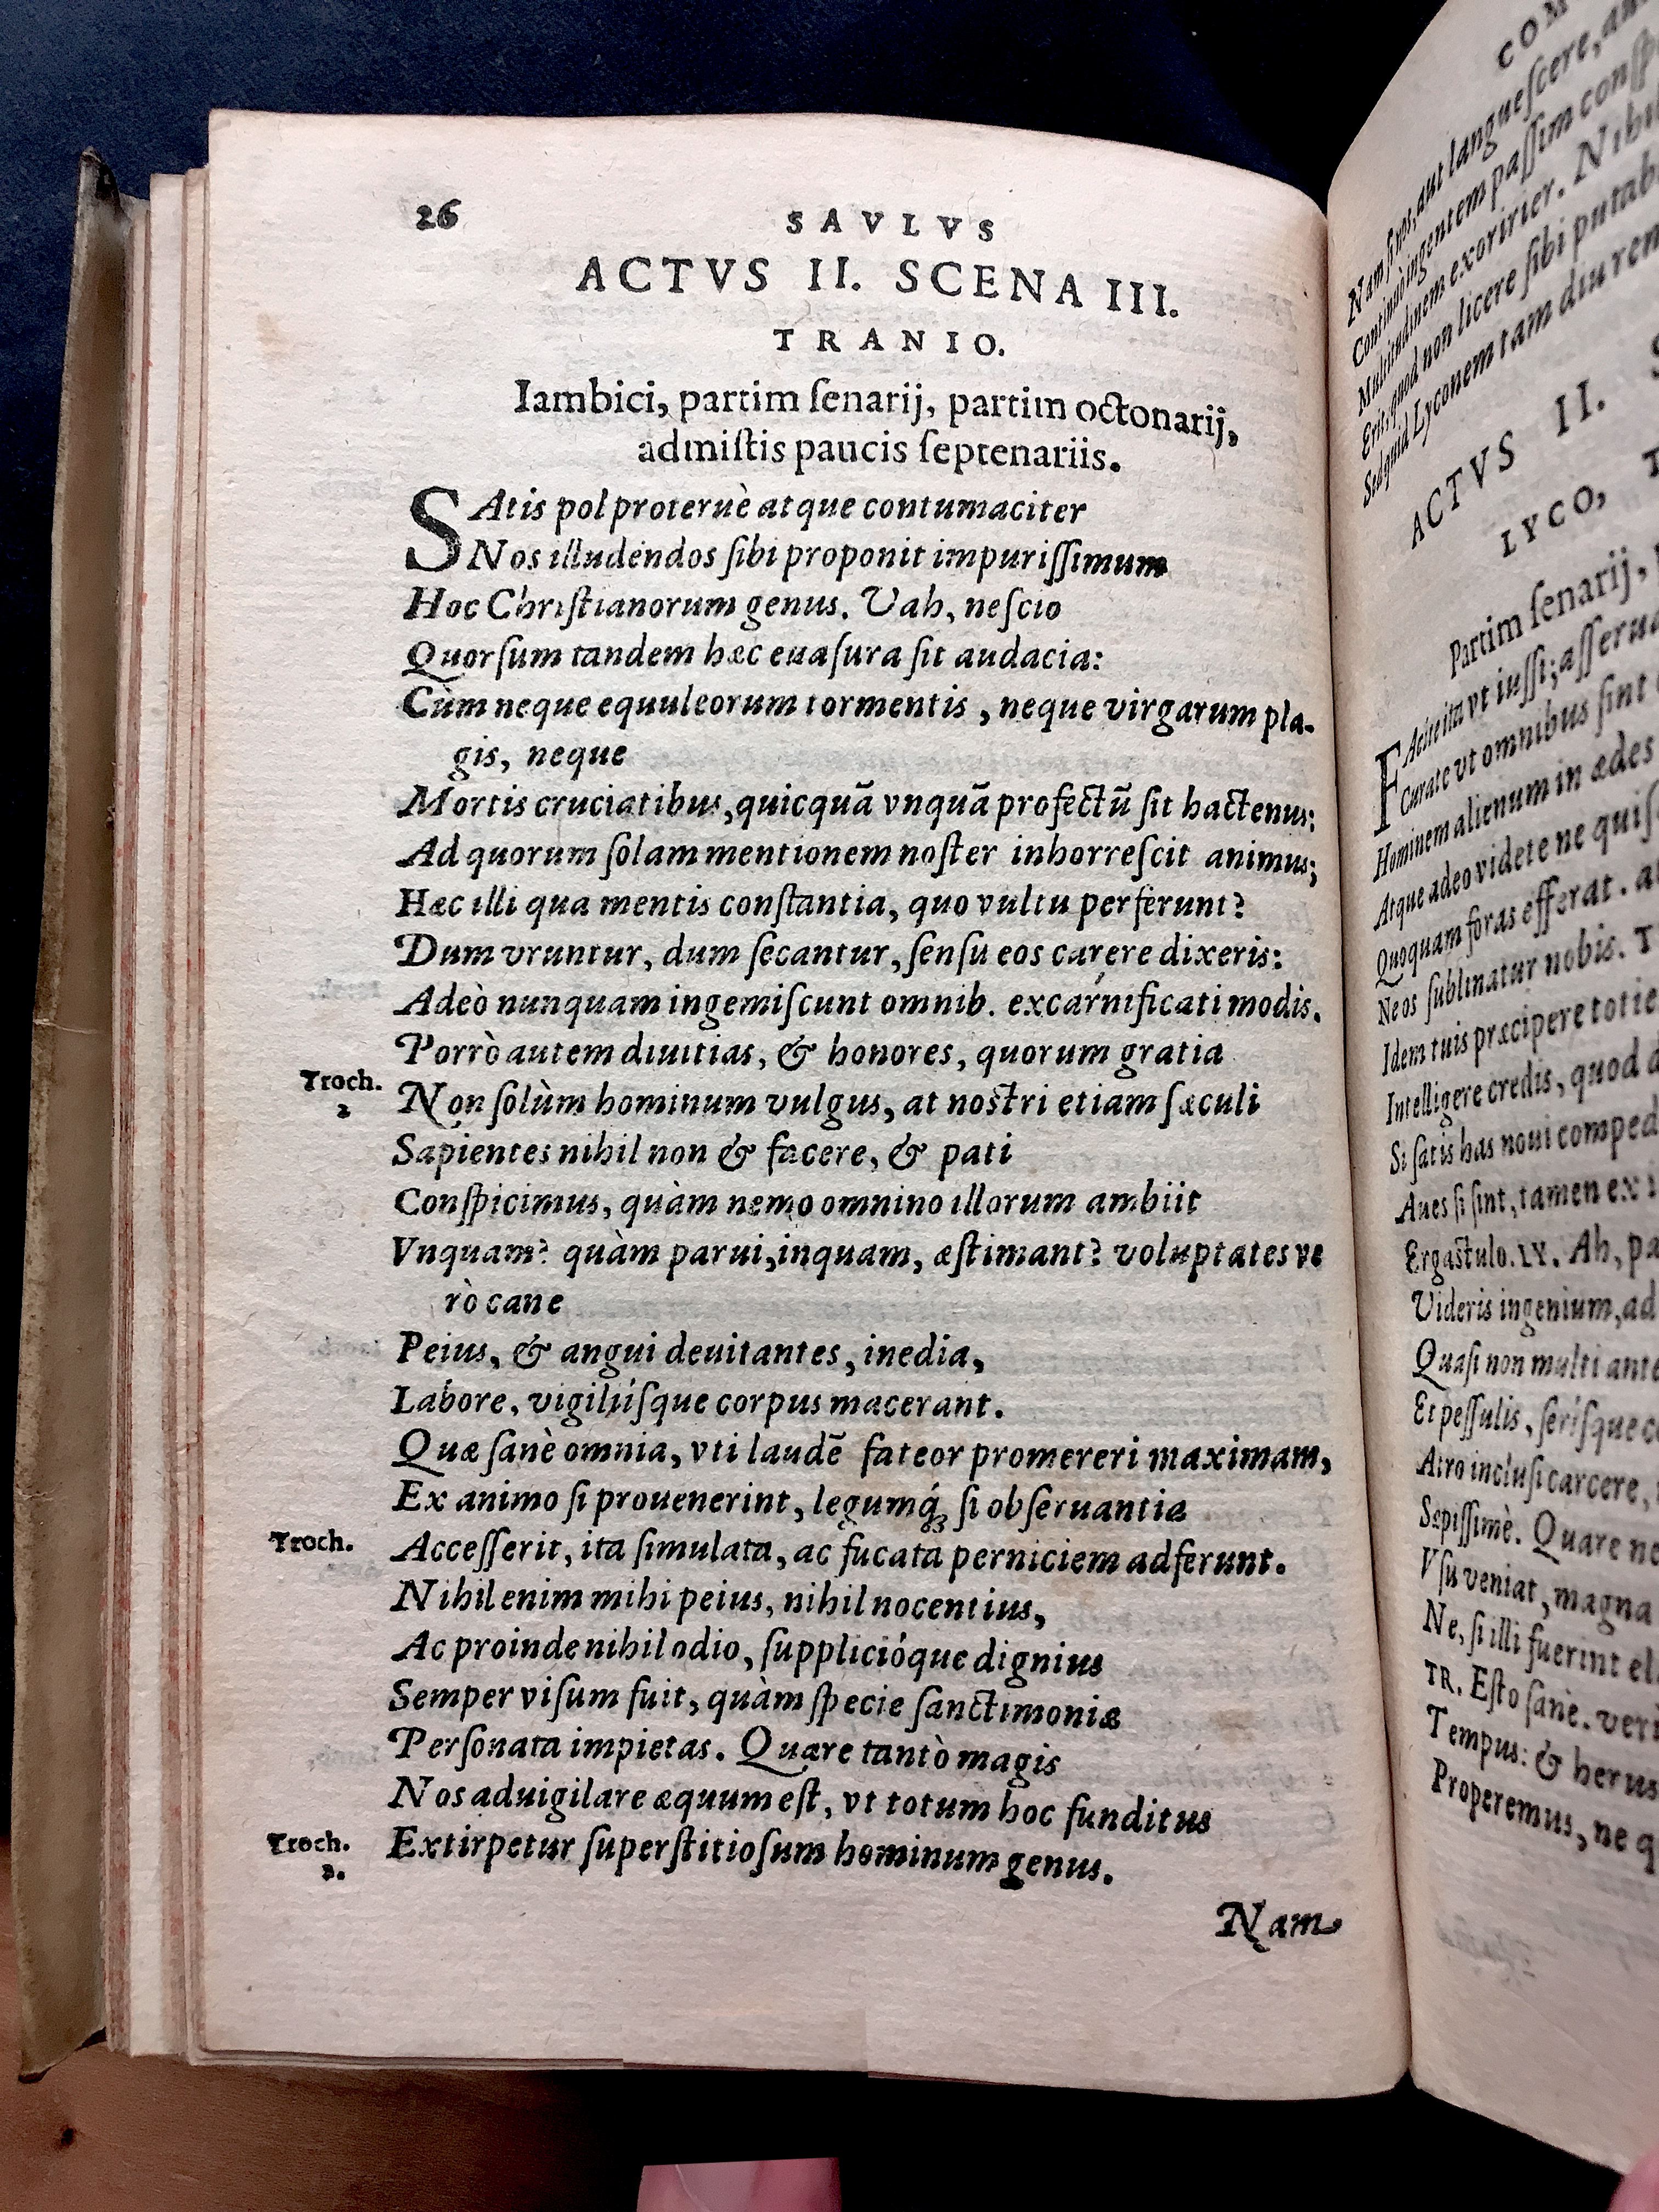 26 SAVLVS
ACTVS II. SCENA III.
TRANIO.
Iambici, partim ſenarij, partim octonarij,
admiſtis paucis ſeptenariis.
SAtis pol proteruè atque contumaciter
Nos illudendos ſibi proponit impuriſſimum
Hoc Chriſtianorum genus. Vah, neſcio
Quorſum tandem hæc euaſura ſit audacia:
Cùm neque equuleorum tormentis, neque virgarum pla-
gis, neque
Mortis cruciatibus, quicquā vnquā profectū ſit hactenus:
Ad quorum ſolam mentionem noſter inhorreſcit animus;
Hæc illi qua mentis conſtantia, quo vultu perferunt?
Dum vruntur, dum ſecantur, ſenſu eos carere dixeris:
Adeò nunquam ingemiſcunt omnib. excarnificati modis.
Porrò autem diuitias, & honores, quorum gratia
Troch.
2
Non ſolùm hominum vulgus, at noſtri etiam ſæculi
Sapientes nihil non & facere, & pati
Conſpicimus, quàm nemo omnino illorum ambiit
Vnquam? quàm parui, inquam, æſtimant? voluptates ve
rò cane
Peius, & angui deuitantes, inedia,
Labore, vigiliíſque corpus macerant.
Quæ ſanè omnia, vti laudē fateor promereri maximam,
Ex animo ſi prouenerint, legumq́; ſi obſeruantia
Troch.
Acceſſerit, ita ſimulata, ac fucata perniciem adferunt.
Nihil enim mihi peius, nihil nocentius,
Ac proinde nihil odio, ſupplicióque dignius
Semper viſum fuit, quàm ſpecie ſanctimoniæ
Perſonata impietas. Quare tantò magis
Nos aduigilare æquum eſt, vt totum hoc funditus
Troch.
2.
Extirpetur ſuperſtitioſum hominum genus.
Nam
COM
Nam ſi nos, aut langueſcere, au
Continuò ingentem paſſim conſp
Multitudinem exoririer. Nihil
Erit, quod non licere ſibi putab
Sed quid Lyconem tam diu rem
ACTVS II. S
LYCO, T
Partim ſenarij,
FAcite ita vt iuſſi; aſſerua
Curate vt omnibus ſint
Hominem alienum in ædes
Atque adeo videte ne quiſ
Quoquam foras efferat. a
Ne os ſublinatur nobis. T
Idem tuis præcipere totie
Intelligere credis, quod
Si ſatis has noui comped
Aues ſi ſint, tamen ex
Ergaſtulo. LY. Ah, pa
Videris ingenium, ad
Quaſi non multi ante
Et peſſulis, ſeriſque c
Atro incluſi carcere,
Sæpiſſimè. Quare ne
Vſu veniat, magna
Ne, ſi illi fuerint el
TR. Eſto ſanè. veri
Tempus: & herus
Properemus, ne q